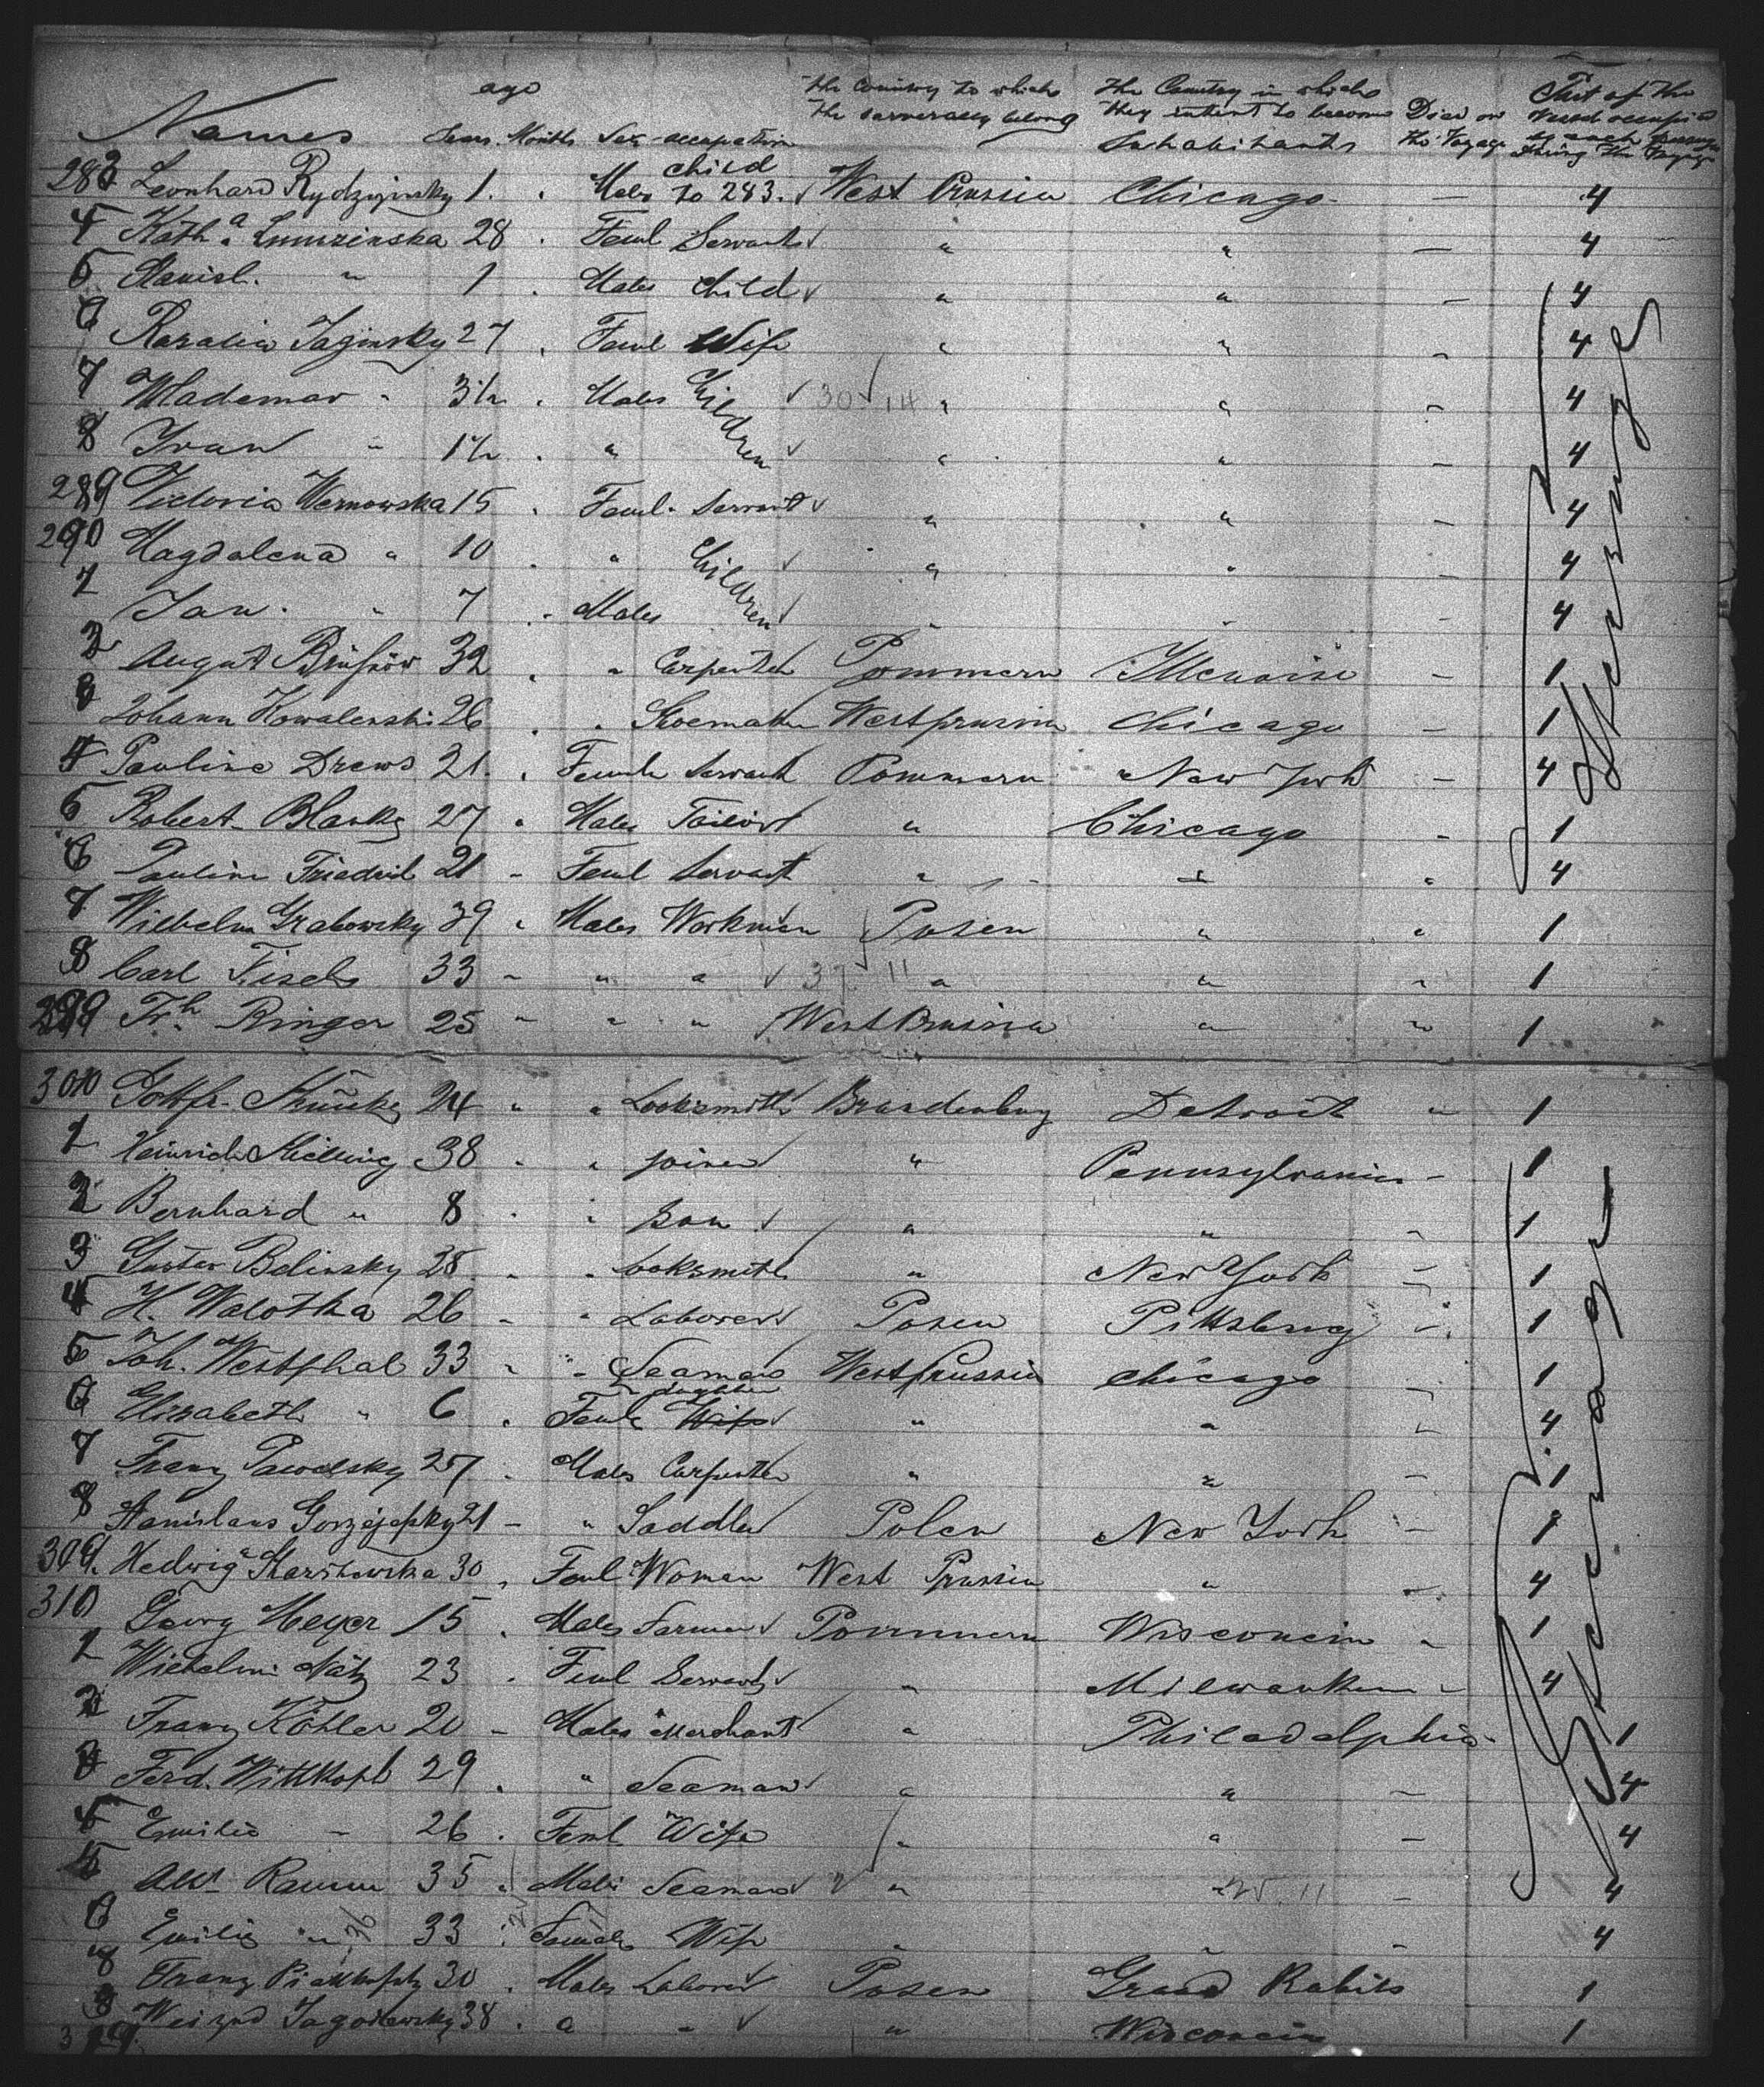 ago the Country to which the Country in which Part of the
Names Years Months Sex occupation the severally belong they intent to become Inhabitants Died on the Voyage Vessel occupied by each during the Voyage
283 Leonhard Rydzyinsky 1. Males child to 283. West Prussia Chicago — 4
4 Kath.a 28 Feml Servant " " — 4
5 Stanisl. " 1 Males Child " " — 4
6 Rasalia Jaginsky 27 Feml Wife " " — 4
7 Wlademar " 3½ Males Children 30 14 " " — 4
8 Ivan " 1½ " " " — 4
289 Victoria Wernowska 15 Feml. Servant " " — 4
290 Magdalena " 10 " Children " " — 4
1 Jan. " 7 Males " " — 4
2 August 32 " Carpenter Pommern — 1
3 Johann Kowalerski 26 " Shoemaker Westprussia Chicago — 1
4 Pauline Drews 21. Female Servant Pommern New York — 4
5 Robert Blanke 27 Males Tailor " Chicago — 1
6 Pauline Friedrich 21 Feml Servant " " " 4
7 Wilhelm Grabowsky 39 Males Workman Posen " " 1
8 Carl Fisch 33 " " 37 11 " " " 1
299 Fr.h Ringer 25 " " West Prussia " " 1
Steerage
300 Gottfr. 24 " Locksmith Brandenburg Detroit " 1
1 Heinrich 38 " joiner " Pennsylvania — 1
2 Bernhard " 8 " son " " — 1
3 Gustav Belinsky 28 " Locksmith " New York — 1
4 H. Walotka 26 " Laborer Posen Pittsburg " 1
5 Joh. Westphal 33 " Seaman West Prussia Chicago — 1
6 Elisabeth " 6 Femle daughter Wife " " — 4
7 Franz Pawolsky 27 Males Carpenter " " — 1
8 Stanislaus 21 " Saddler Polen New York — 1
309. Hedwig Starikowska 30 Feml Woman West Prussia " — 4
310 Georg Meyer 15 Males Farmer Pommern Wisconsin " 1
1 23 Feml Servant " Milwaukee — 4
2 Franz Köhler 20 Males Merchant " Philadelphia — 1
3 Ferd. Wittkopf 29 " Seaman " " — 4
4 Emilie " 26 Feml Wife " " — 4
5 35 Males Seaman " " 11 — 4
6 Emilie " 33 Female Wife " " — 4
7 Franz 30 Males Laborer Posen Grand Rabits 1
8 38 " " " Wisconsin 1
Steerage